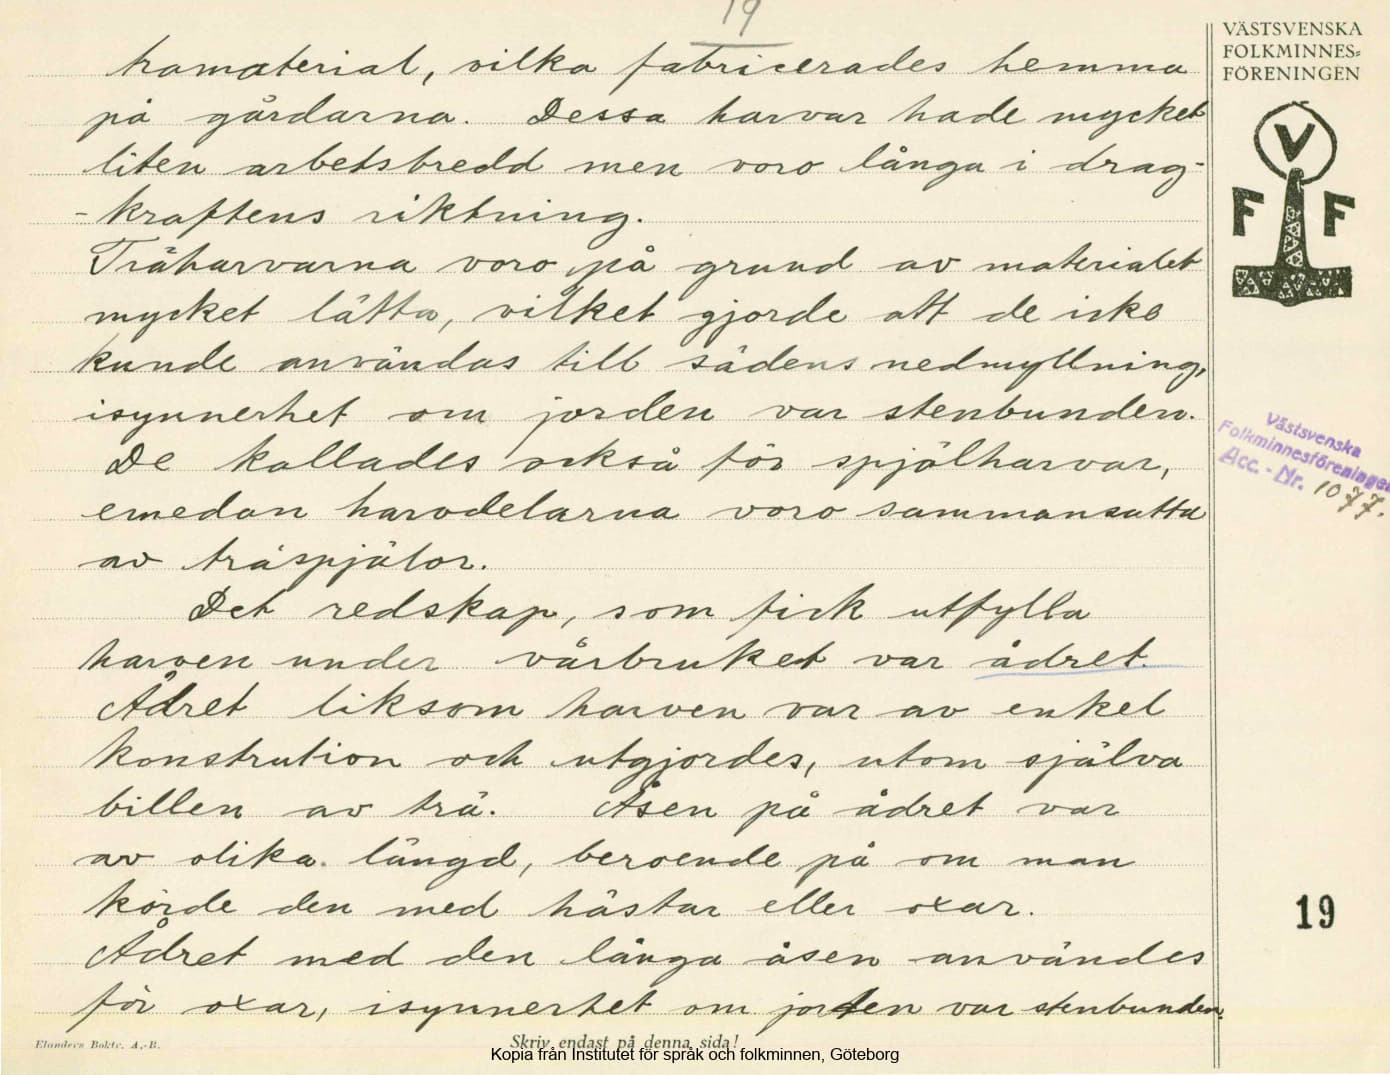 19
tramaterial, vilka fabricerades hemma
på gårdarna. Dessa harvar hade mycket
liten arbetsbredd men voro långa i drag-
-kraftens riktning.
Träharvarna voro på grund av materialet
mycket lätta, vilket gjorde att de icke
kunde användas till sädens nedmyllning,
isynnerhet om jorden var stenbunden.
De kallades också för spjälharvar,
emedan harvdelarna voro sammansatta
av träspjälor.
Det redskap, som fick utfylla
harven under vårbruket var ådret.
Ådret liksom harven var av enkel
konstrution och utgjordes, utom själva
billen av trä. Åsen på ådret var
av olika längd, beroende på om man
körde den med hästar eller oxar.
Ådret med den långa åsen användes
för oxar, isynnerhet om jorden var stenbunden.
Elanders Boktr. A.-B.
Skriv endast på denna sida!
Kopia från Institutet för språk och folkminnen, Göteborg
VÄSTSVENSKA
FOLKMINNES=
FÖRENINGEN
V
F F
Västsvenska
Folkminnesföreningen
Acc.-Nr. 1077.
19